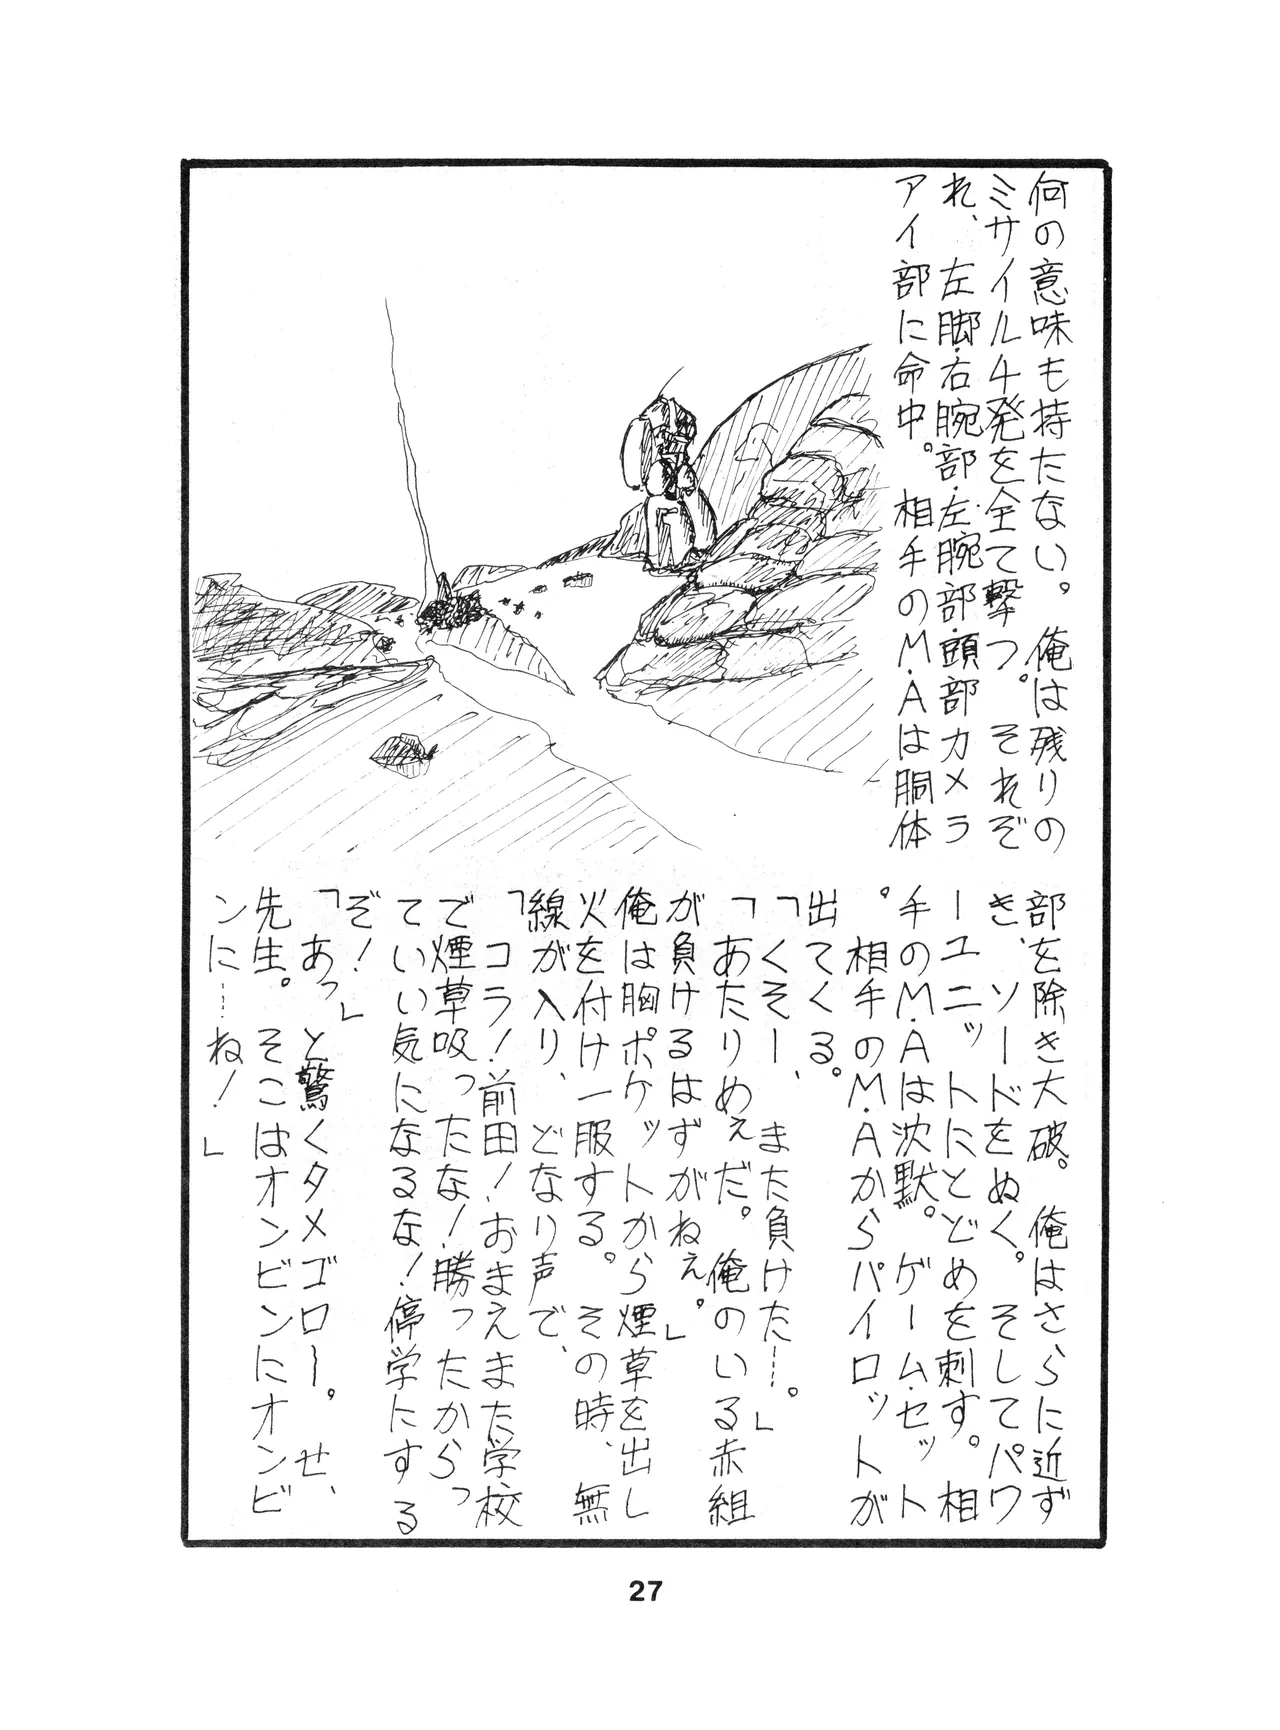 何の意味も持たない。俺は残りの
ミサイル4発を全て撃つ。それぞ
れ、左脚・右腕部・左腕部・頭部カメラ
アイ部に命中。相手のM・Aは胴体
部を除き大破。俺はさらに近ず
き、ソードをぬく。そしてパワ
ーユニットにとどめを刺す。相
手のM・Aは沈黙。ゲーム・セット
。相手のM・Aからパイロットが
出てくる。
「くそー、また負けた…。」
「あたりめぇだ。俺のいる赤組
が負けるはずがねぇ。」
俺は胸ポケットから煙草を出し
火を付け一服する。その時、無
線が入り、どなり声で、
「コラ!前田!おまえまた学校
で煙草吸ったな!勝ったからっ
ていい気になるな!停学にする
ぞ!」
「あっ」と驚くタメゴロー。せ、
先生。そこはオンビンにオンビ
ンに…ね!」
27